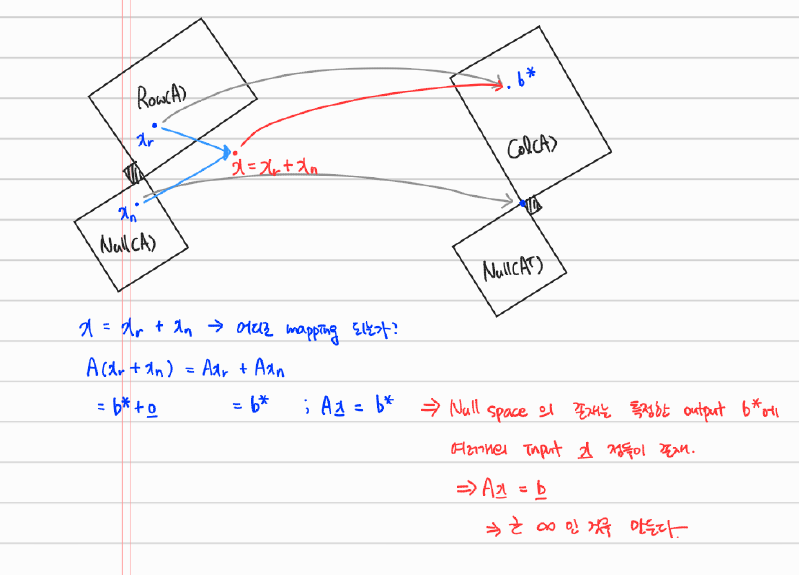 Row(A)
xr
x = xr + xn
xn
Null(A)
b*
Col(A)
Null(Aᵀ)
x = xr + xn → 어디로 mapping 되는가?
A(xr + xn) = Axr + Axn
= b* + 0 = b* ; Ax = b*
⇒ Null space 의 존재는 특정한 output b*에
여러개의 input x 점들이 존재.
⇒ Ax = b
⇒ 는 ∞ 인 경우 만든다.